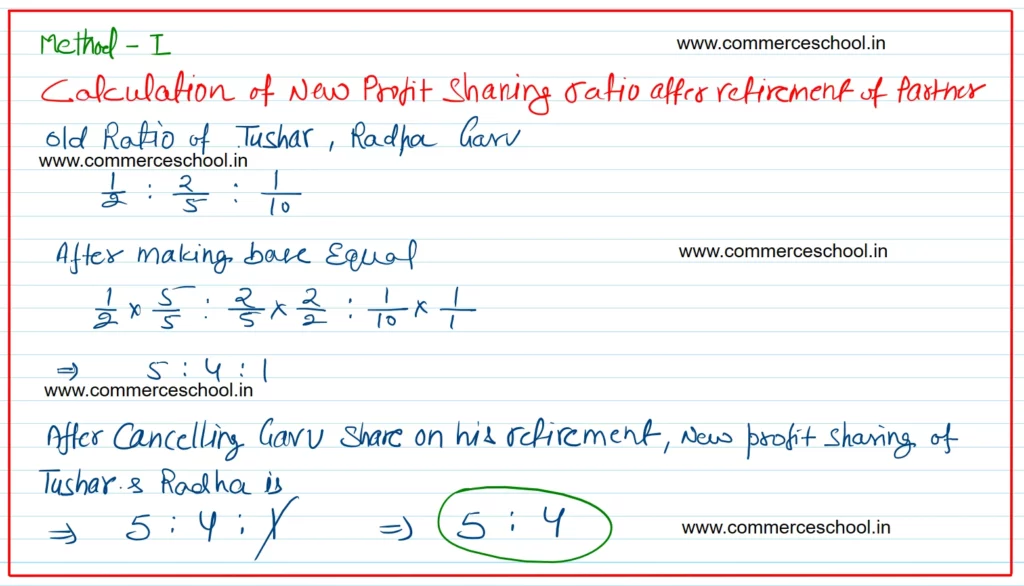 Method - I
www.commerceschool.in
Calculation of New Profit Sharing ratio after retirement of Partner
old Ratio of Tushar, Radha Garv
www.commerceschool.in
1/2 : 2/5 : 1/10
After making base Equal
www.commerceschool.in
1/2 × 5/5 : 2/5 × 2/2 : 1/10 × 1/1
⇒ 5 : 4 : 1
www.commerceschool.in
After Cancelling Garv Share on his retirement, New profit sharing of
Tushar & Radha is
⇒ 5 : 4 : 1 ⇒ 5 : 4
www.commerceschool.in